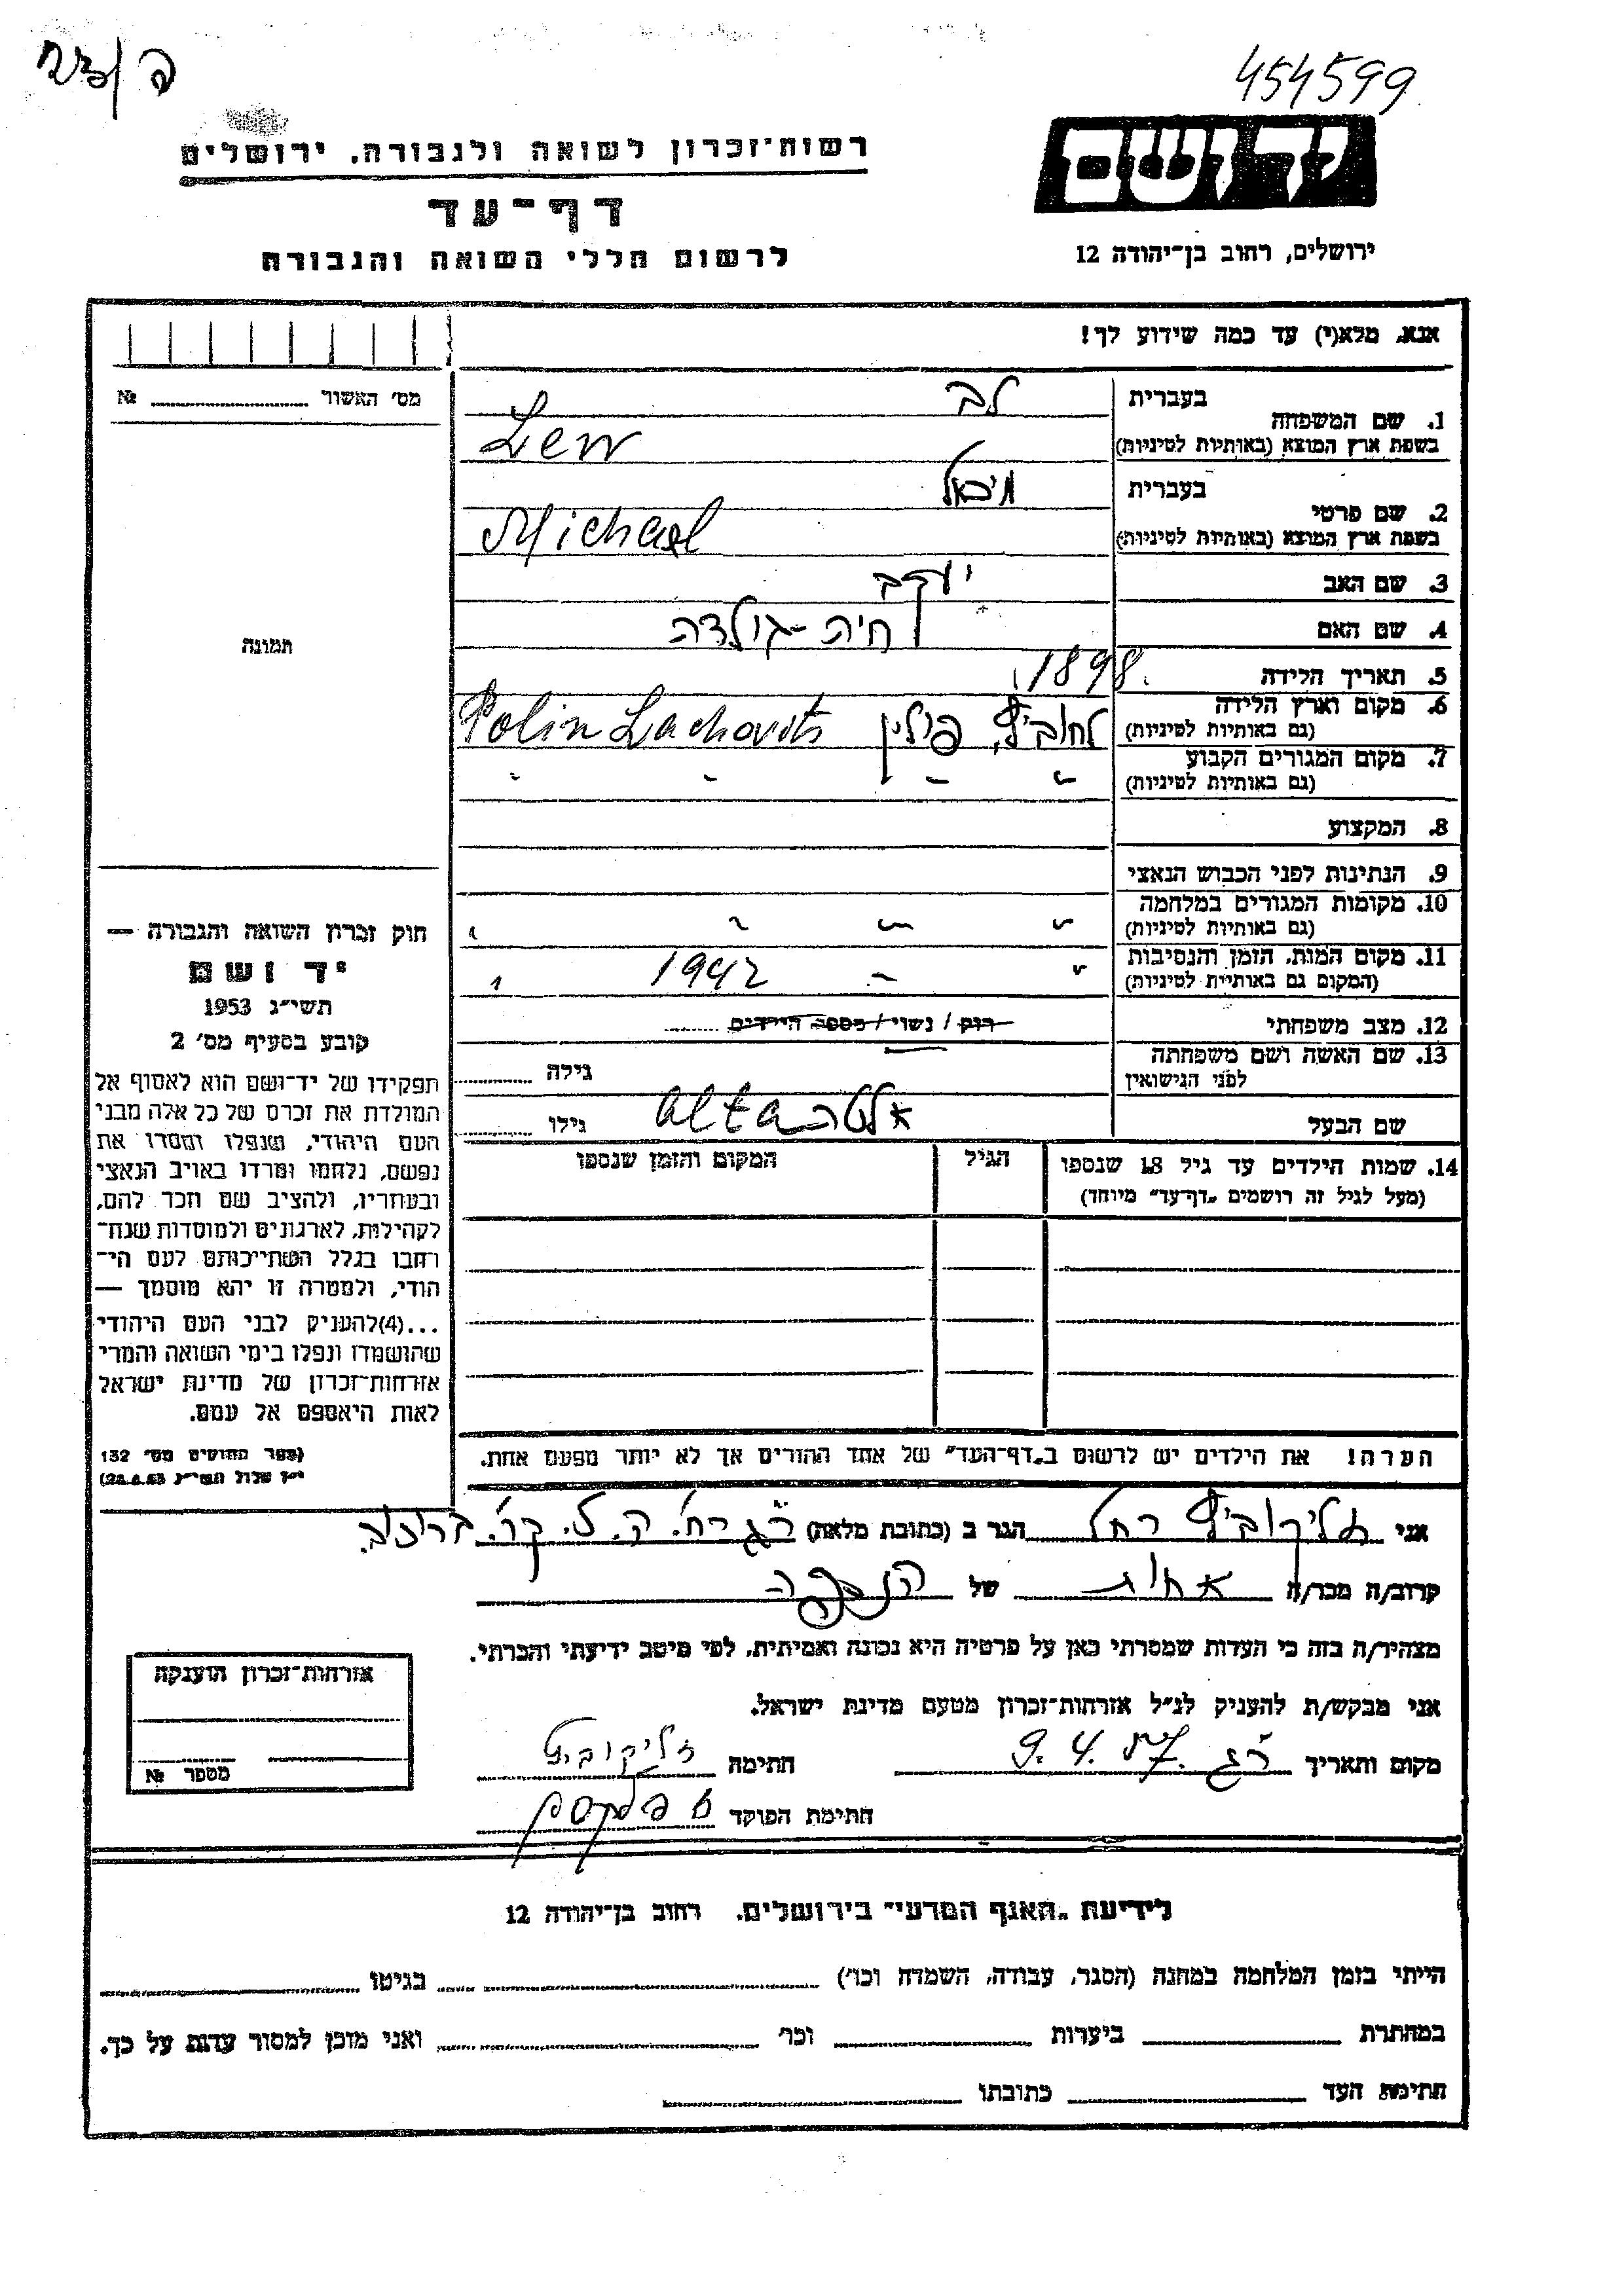 454599
יד ושם
ירושלים, רחוב בן־יהודה 12
רשות־זכרון לשואה ולגבורה, ירושלים
דף־עד
לרשום חללי השואה והגבורה
אנא, מלא(י) עד כמה שידוע לך!
בעברית לב
1. שם המשפחה
בשפת ארץ המוצא (באותיות לטיניות) Lew
בעברית מיכאל
2. שם פרטי
בשפת ארץ המוצא (באותיות לטיניות) Michael
3. שם האב יעקב
4. שם האם חיה - גולדה
5. תאריך הלידה 1898.
6. מקום וארץ הלידה לחוביץ, פולין Polin Lachovits
(גם באותיות לטיניות)
7. מקום המגורים הקבוע
(גם באותיות לטיניות)
8. המקצוע
9. הנתינות לפני הכבוש הנאצי
10. מקומות המגורים במלחמה
(גם באותיות לטיניות)
11. מקום המות, הזמן והנסיבות 1942
(המקום גם באותיות לטיניות)
12. מצב משפחתי רוק / נשוי / מספר הילדים
13. שם האשה ושם משפחתה גילה
לפני הנישואין
שם הבעל אלטה alta גילו
14. שמות הילדים עד גיל 18 שנספו הגיל המקום והזמן שנספו
(מעל לגיל זה רושמים "דף־עד" מיוחד)
הערה! את הילדים יש לרשום ב"דף־העד" של אחד ההורים אך לא יותר מפעם אחת.
מס' האשור №
תמונה
חוק זכרון השואה והגבורה —
יד ושם
תשי"ג 1953
קובע בסעיף מס' 2
תפקידו של יד־ושם הוא לאסוף אל
המולדת את זכרם של כל אלה מבני
העם היהודי, שנפלו ומסרו את
נפשם, נלחמו ומרדו באויב הנאצי
ובעוזריו, ולהציב שם וזכר להם,
לקהילות, לארגונים ולמוסדות שנח־
רבו בגלל השתייכותם לעם הי־
הודי, ולמטרה זו יהא מוסמך —
...(4)להעניק לבני העם היהודי
שהושמדו ונפלו בימי השואה והמרי
אזרחות־זכרון של מדינת ישראל
לאות היאספם אל עמם.
(ספר החוקים מס' 132
אני זליקוביץ רחל הגר ב (כתובת מלאה) ר"ג רח'
קרוב/ה מכר/ה אחות של הנספה
מצהיר/ה בזה כי העדות שמסרתי כאן על פרטיה היא נכונה ואמיתית, לפי מיטב ידיעתי והכרתי.
אני מבקש/ת להעניק לנ"ל אזרחות־זכרון מטעם מדינת ישראל.
מקום ותאריך ר"ג 9.4.57 חתימה זליקוביץ
חתימת הפוקד
אזרחות־זכרון הוענקה
מספר №
לידיעת "האגף המדעי" בירושלים, רחוב בן־יהודה 12
הייתי בזמן המלחמה במחנה (הסגר, עבודה, השמדה וכו') בגיטו
במחתרת ביערות וכו' ואני מוכן למסור עדות על כך.
חתימת העד כתובתו